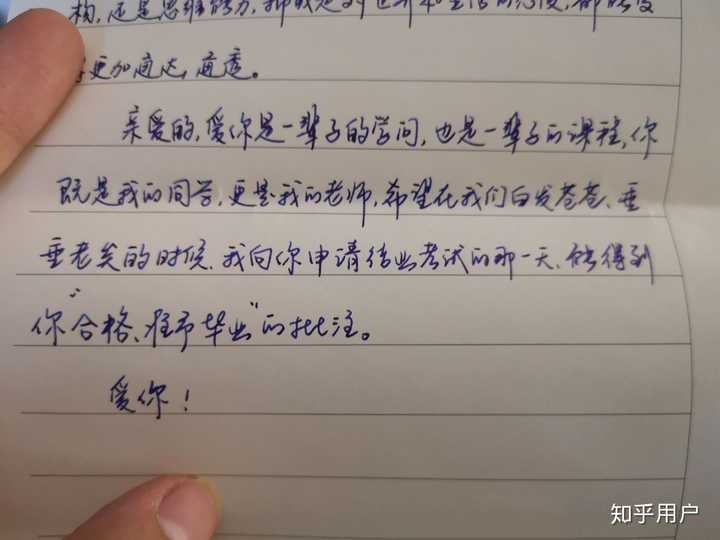 构,还是思维能力,抑或是对世界和生活的态度,都能变
更加通达,通透。
亲爱的,爱你是一辈子的学问,也是一辈子的课程,你
既是我的同学,更是我的老师,希望在我们白发苍苍、垂
垂老矣的时候,我向你申请结业考试的那一天,能得到
你“合格、准予毕业”的批注。
爱你!
知乎用户